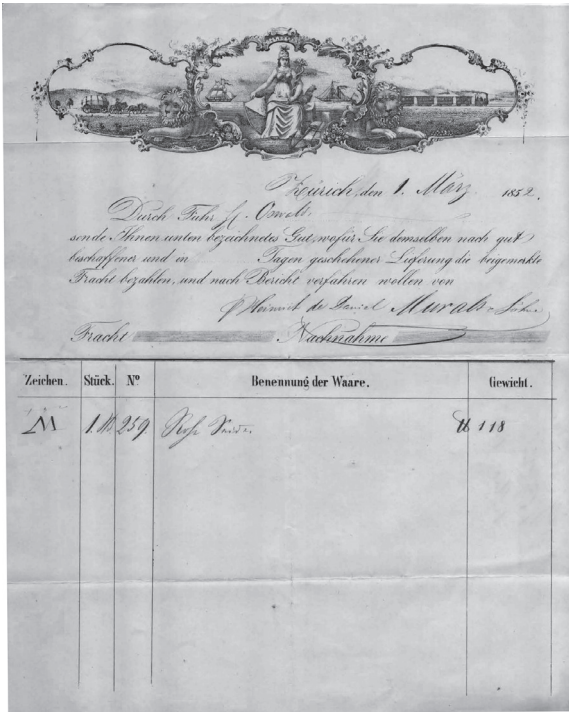 Zürich, den 1. März. 1852.
Durch Fuhr H. Oswald.
sende Ihnen unten bezeichnetes Gut, wofür Sie demselben nach gut
beschaffener und in Tagen geschehener Lieferung die beigemakte
Fracht bezahlen, und nach Bericht verfahren wollen von
Heinrich de Daniel Muralt Söhne
Fracht Nachnahme
Zeichen. Stück. Nº Benennung der Waare. Gewicht.
M 1. 259. Rohe Seide. ℔ 118